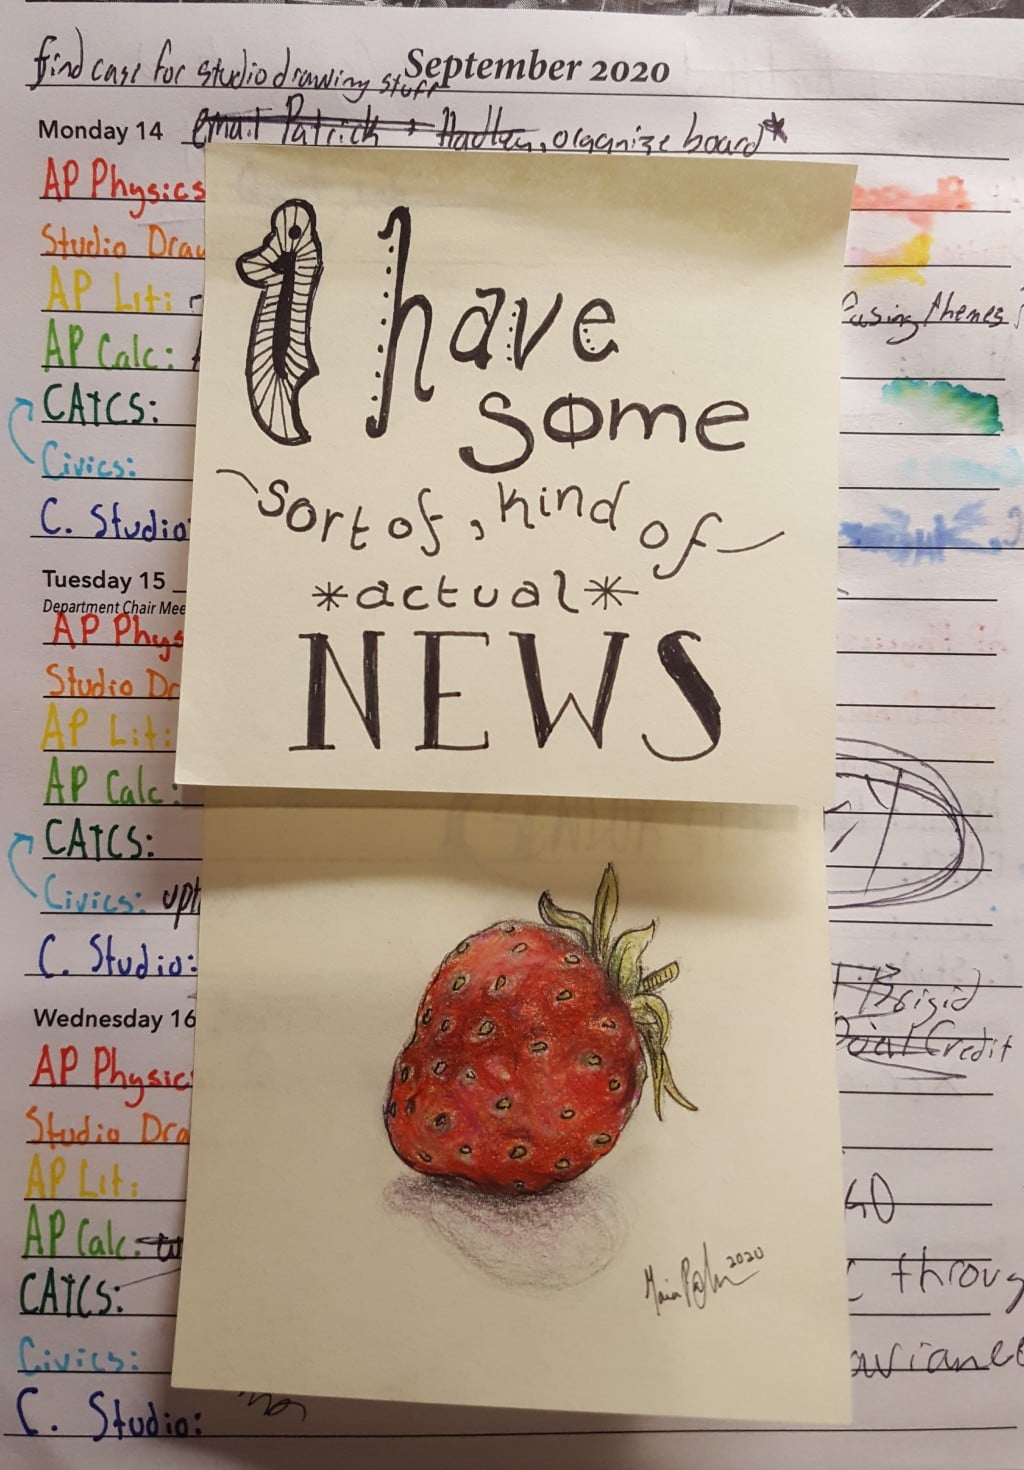 find case for studio drawing stuff
September 2020
Monday 14 email Patrick + Hadley, organize board*
AP Physics
Studio Draw
AP Lit:
AP Calc:
CATCS:
Civics:
C. Studio:
Tuesday 15
Department Chair Mee
AP Phys
Studio Dr
AP Lit:
AP Calc:
CATCS:
Civics: upt
C. Studio:
Wednesday 16
AP Physic
Studio Dra
AP Lit:
AP Calc:
CATCS:
Civics:
C. Studio:
I have
some
sort of, kind of
*actual*
NEWS
2020
themes
Brigid
Credit
throug